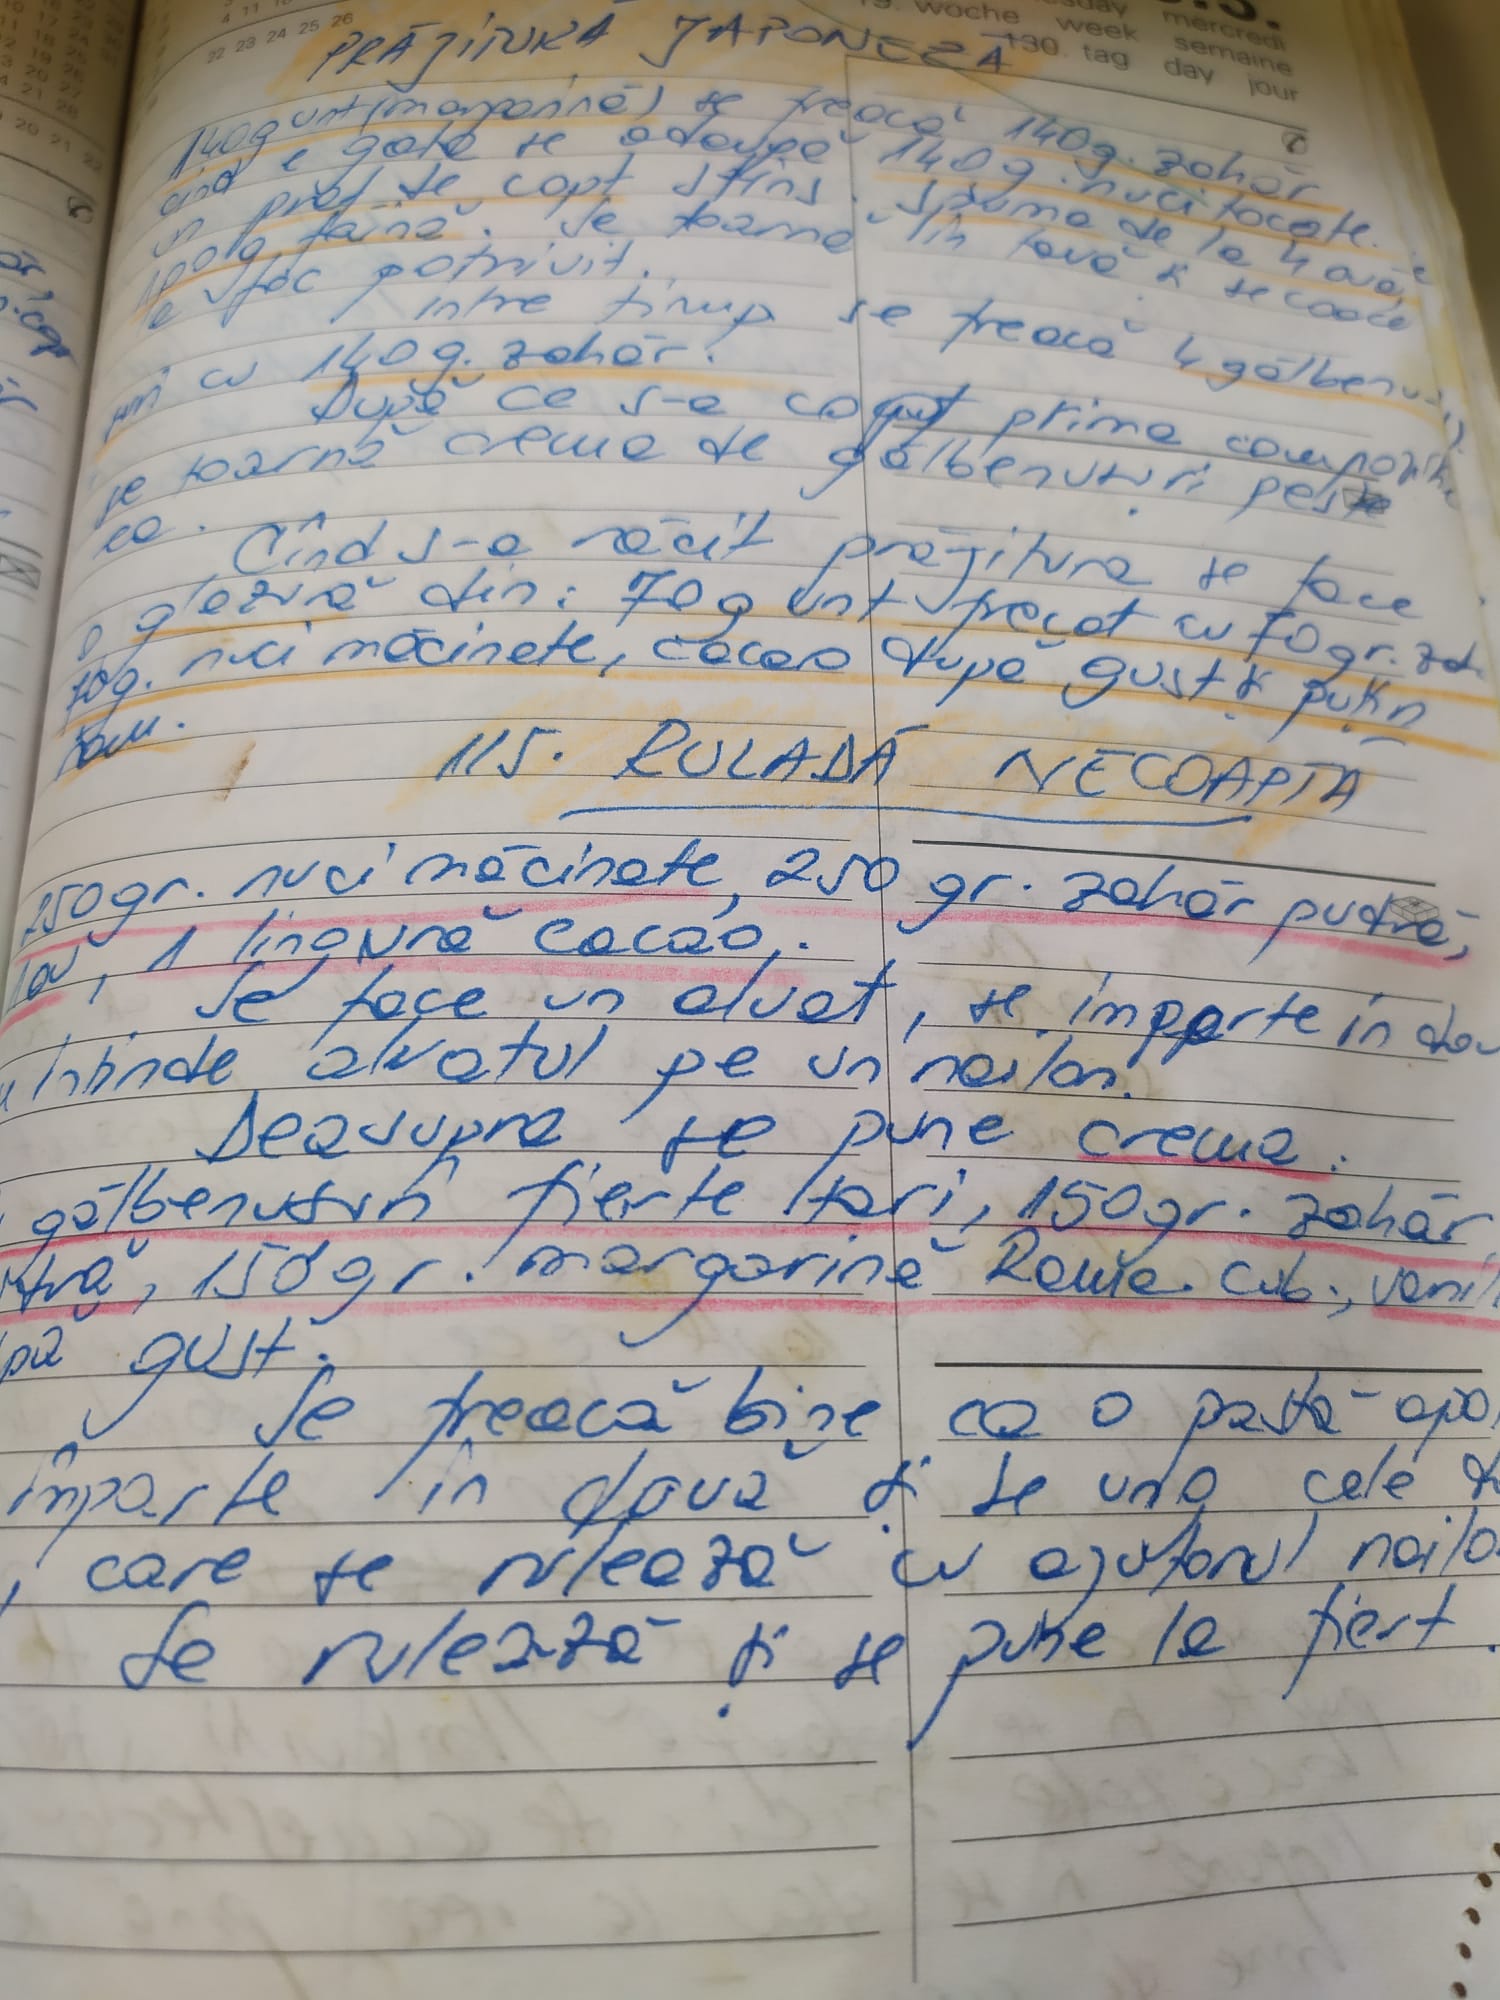 22 23 24 25 26
mercredi
19. woche week semaine
130. tag day jour
PRĂJITURĂ JAPONEZĂ
140g unt (margarină) se freacă 140g. zahăr
cînd e gata se adaugă 140g. nuci tocate.
un praf de copt stins. Spuma de la 4 ouă,
făină. Se toarnă în tavă și se coace
la foc potrivit.
Între timp se freacă 4 gălbenu-
uri cu 140g. zahăr.
După ce s-a copt prima compoziție
se toarnă crema de gălbenușuri peste
ea.
Cînd s-a răcit prăjitura se face
o glazură din: 70g unt frecat cu 70gr. zah.
70g. nuci măcinate, cacao după gust și puțin
rom.
115. RULADĂ NECOAPTĂ
250gr. nuci măcinate, 250 gr. zahăr pudră,
1ou, 1 lingură cacao.
Se face un aluat, se împarte în dou
întinde aluatul pe un nailon.
Deasupra se pune crema:
gălbenușuri fierte tari, 150gr. zahăr
150gr. margarină Rama. Cub., vanil
pă gust.
Se freacă bine ca o pastă apo
împarte în două și se ung cele d
, care se rulează cu ajutorul nailo
Se rulează și se pune la fiert.